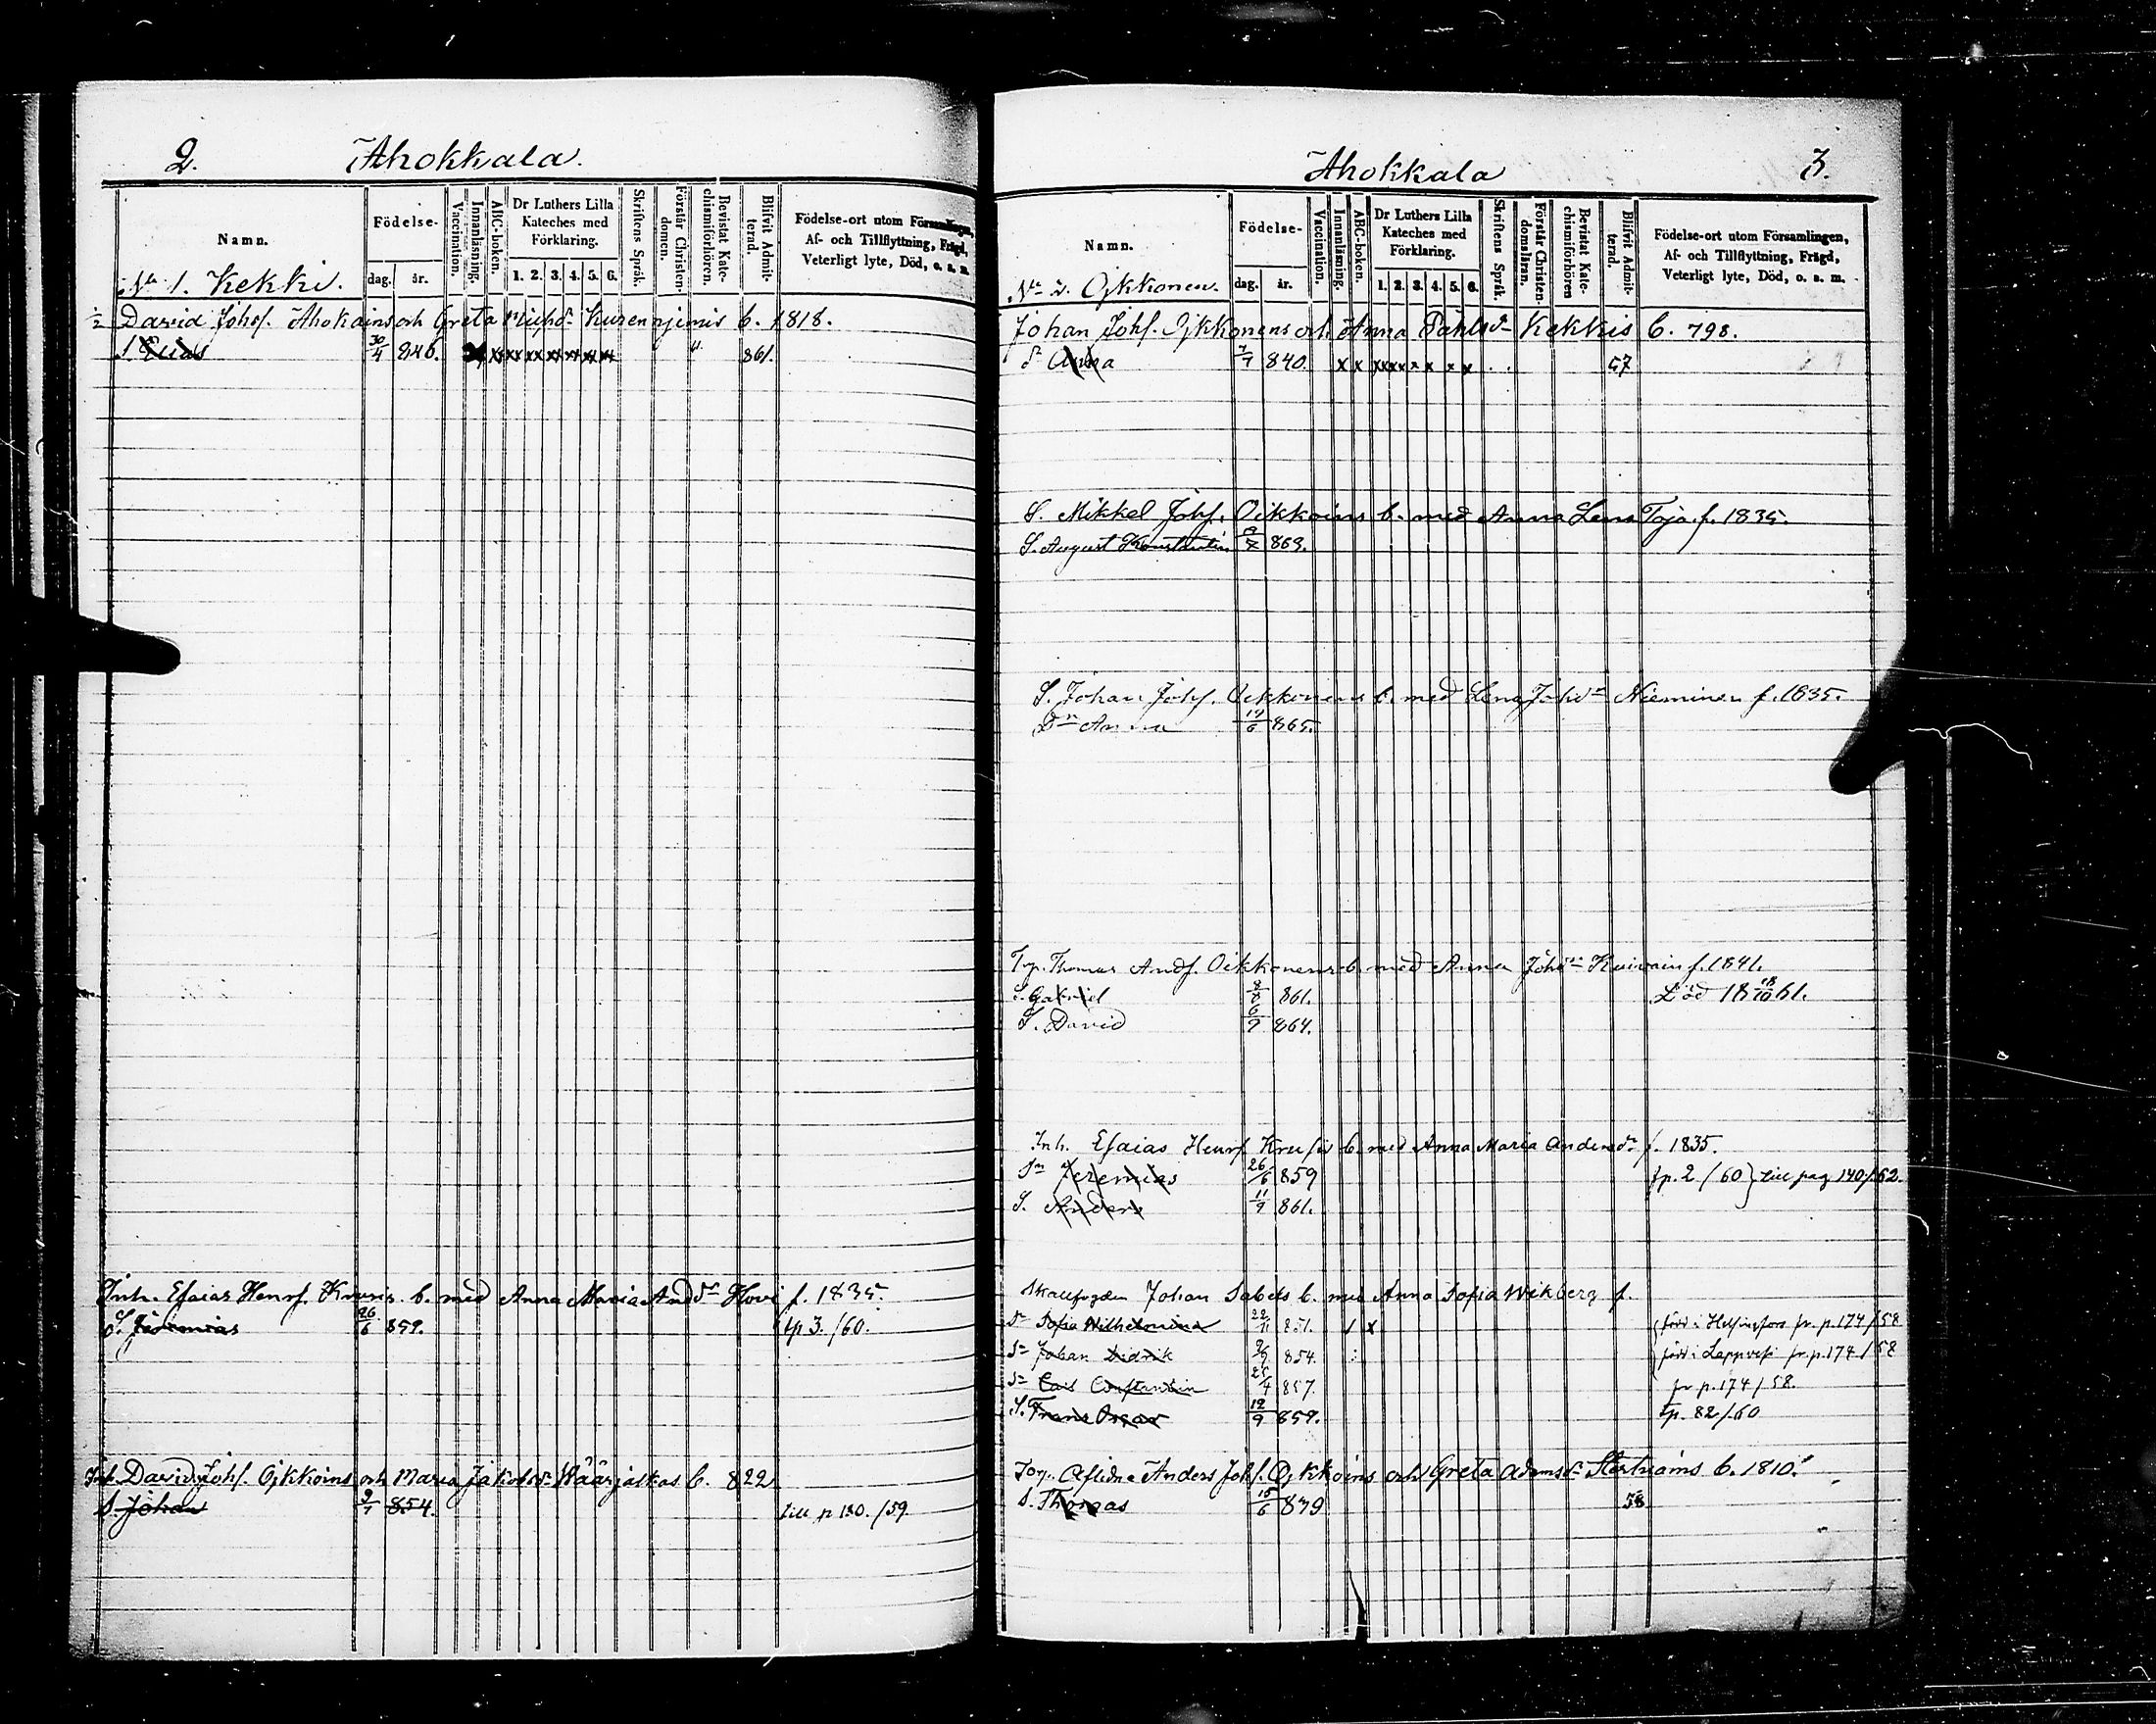 2. Ahokkala.
Namn.
Födelse-
dag. år.
Vaccination.
Innanläsning.
ABC-boken.
Dr Luthers Lilla Kateches med Förklaring.
1. 2. 3. 4. 5. 6.
Skriftens Språk.
Förstår Christen-domen.
Bevistat Kate-chismiförhören.
Blifvit Admit-terad.
Födelse-ort utom Församlingen, Af- och Tillflyttning, Frägd, Veterligt lyte, Död, o. s. m.
No 1. Kekki.
1/2 David Johs. Ahokains och Greta Michsdr Kurennjemis b. 1818.
S Elias 30/4 846. 861.
Inh. Esaias Henrs. Krusis b. med Anna Maria Andsdr Hovi f. 1835.
S. Jeremias 26/6 859. tp 3. /60.
Inh. David Johs. Ojkkoins och Maria Jakobsdr Wäärjalkas b. 822
S. Johan 9/7 854. till p 130. /59.
Ahokkala 3.
Namn.
Födelse-
dag. år.
Vaccination.
Innanläsning.
ABC-boken.
Dr Luthers Lilla Kateches med Förklaring.
1. 2. 3. 4. 5. 6.
Skriftens Språk.
Förstår Christen-domsläran.
Bevistat Kate-chismiförhören
Blifvit Admit-terad.
Födelse-ort utom Församlingen, Af- och Tillflyttning, Frägd, Veterligt lyte, Död, o. s. m.
No 2. Ojkkonen.
Johan Johs. Ojkkonens och Anna Påhlsdr Kekkis b. 798.
dr Anna 7/7 840. x x xx xx x x x x 57
S. Mikkel Johs. Oikkoins b. med Anna Lena Toja f. 1835.
S. August Konstantin 863.
S. Johan Johs. Oikkonens b. med Lena Johsdr Nieminen f. 1835.
Dr Anna 19/6 865.
Torp. Thomas Ands. Oikkonens b. med Anna Johsdr Kuivain f. 1841.
S. Gabriel 8/8 861. Död 18 18/10 61.
S. David 6/9 864.
Inh. Esaias Henrs Krusis b. med Anna Maria Andersdr f. 1835.
Sn Jeremias 26/6 859 fp. 2 /60 } till pag 140/62.
S. Anders 11/9 861.
Johan Sabels b. med Anna Sofia Wikberg f.
dr Sofia Wilhelmina 22/11 851. / x född i Helsingfors fr. p. 174/58
Sn Johan Didrik 2/9 854. född i Lappvesi fr. p. 174/58
Sn Carl Constantin 25/4 857. fr p. 174/58.
S. Frans Oscar 12/9 859. tp. 82/60
Torp. Aflidne Anders Johs. Ojkkoins och Greta Adamsdr b. 1810.
S. Thomas 15/6 839 58